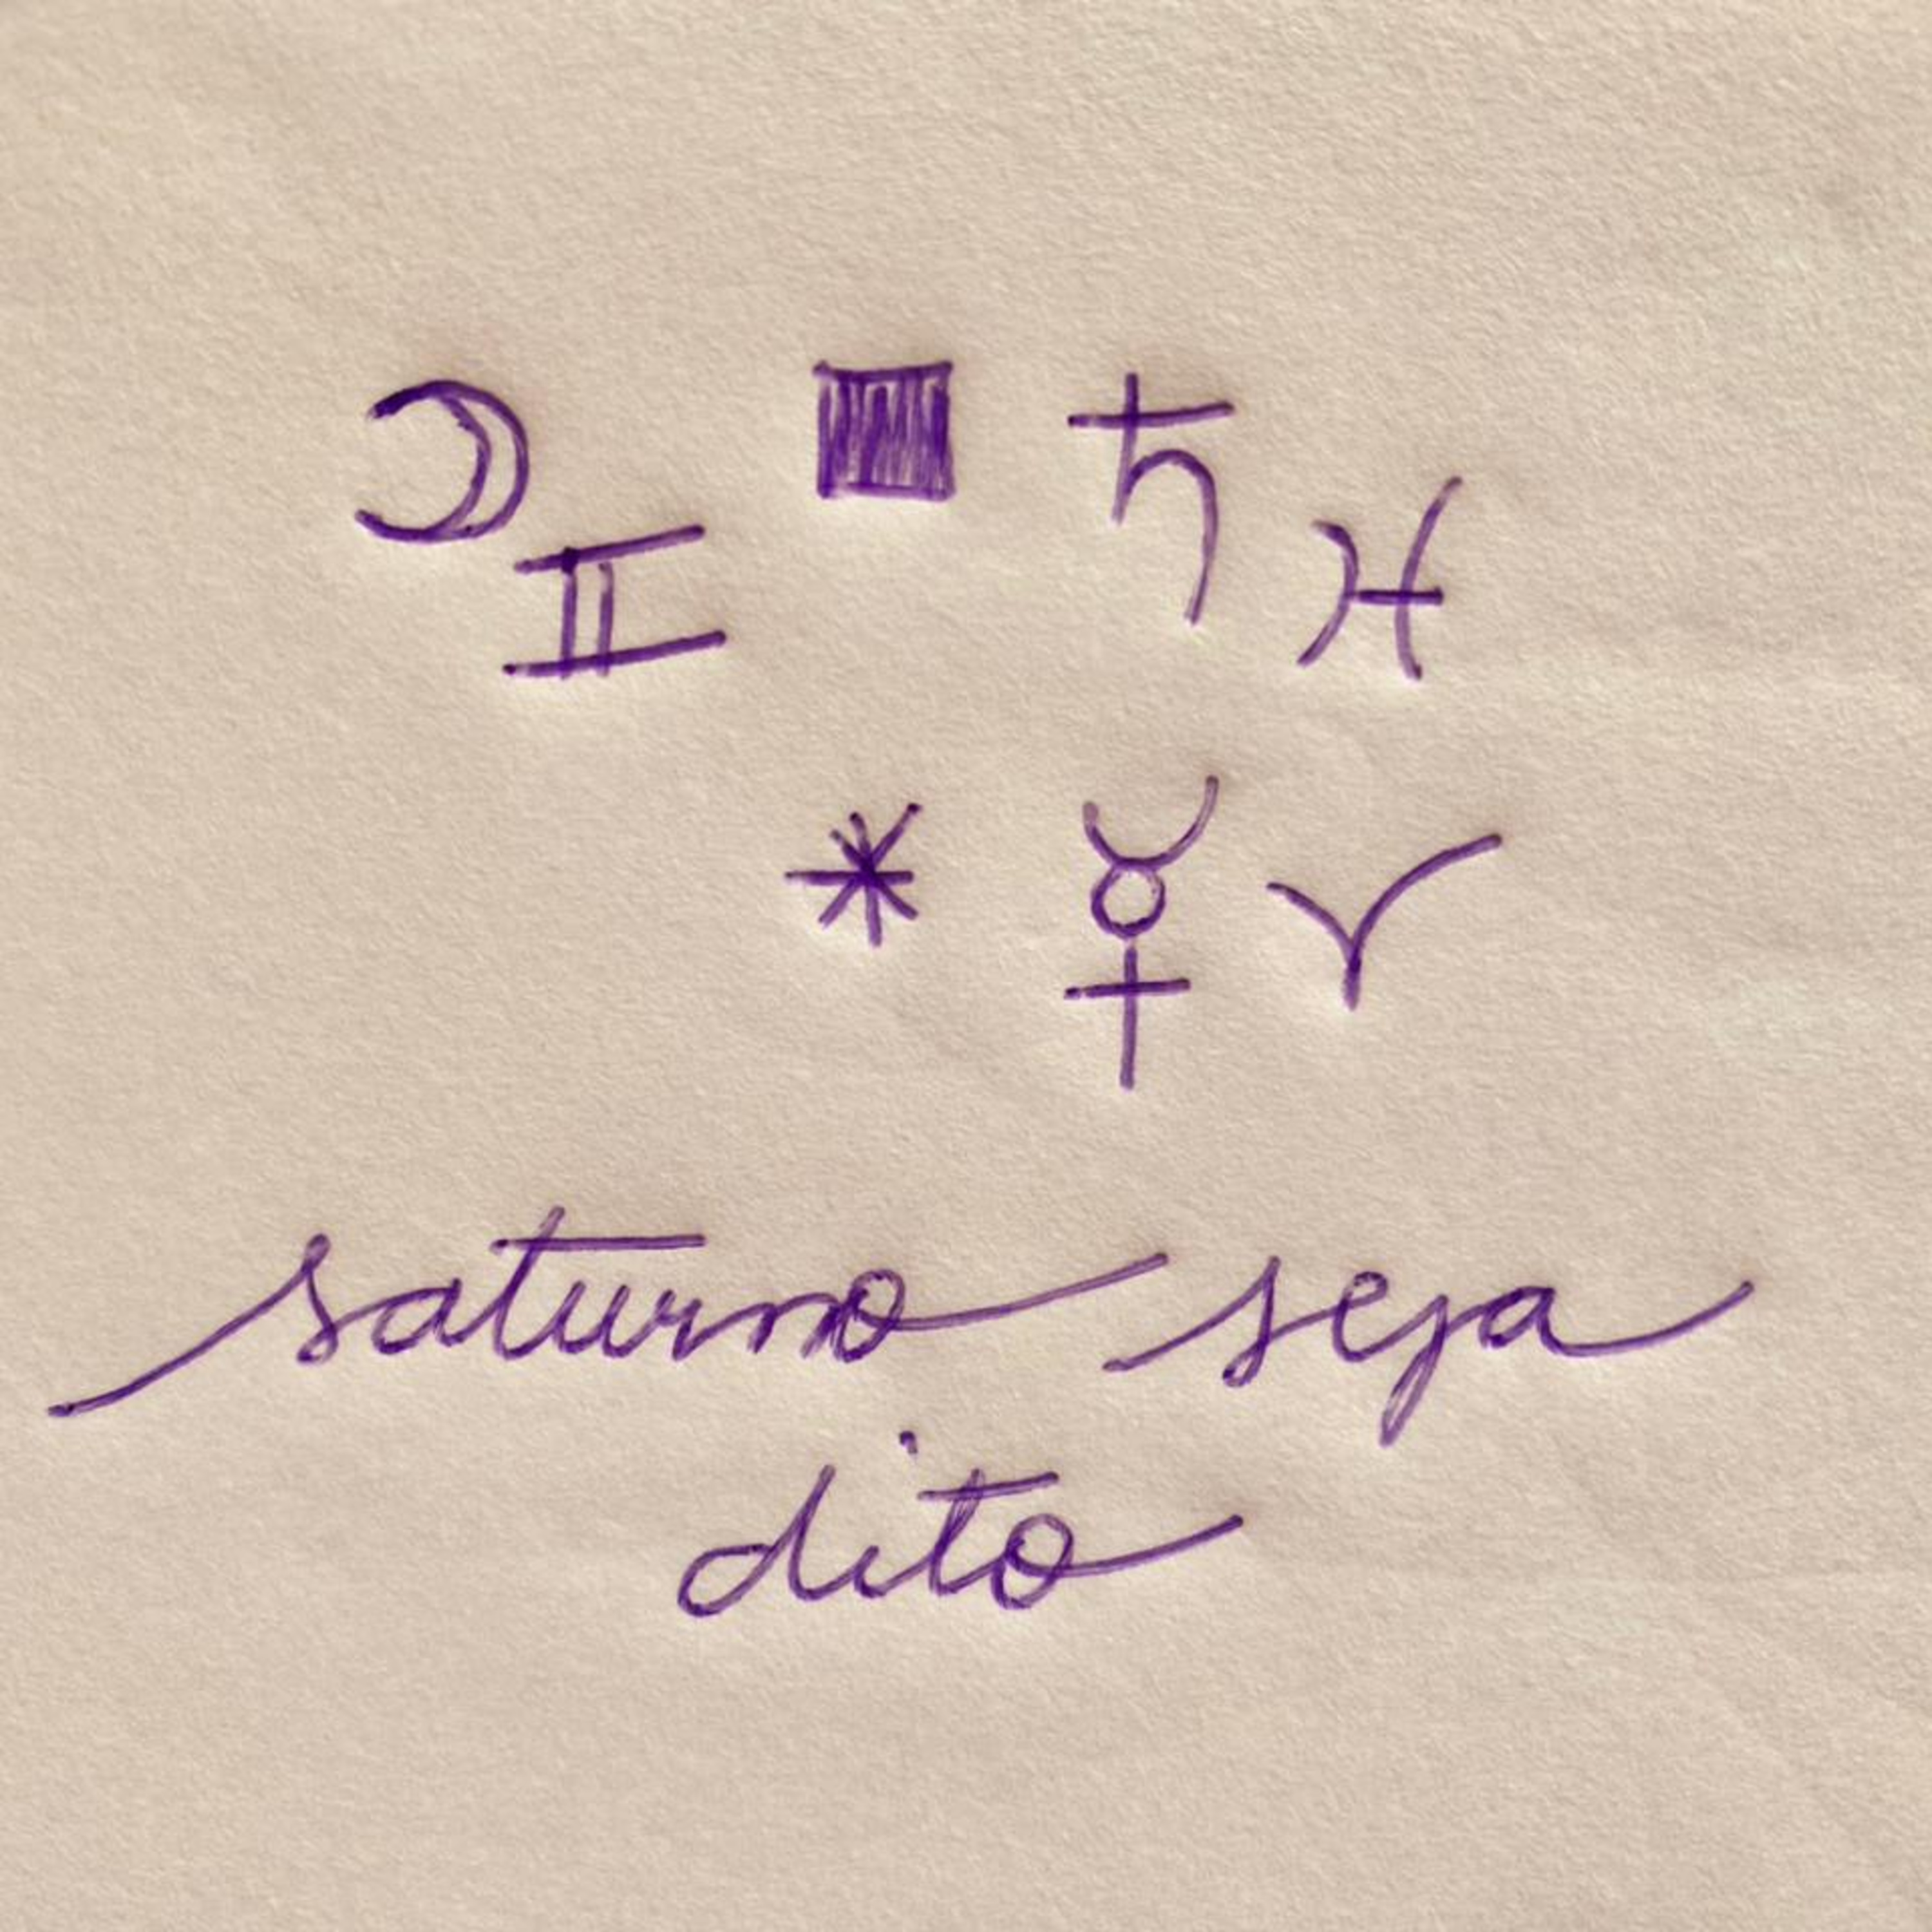 ☽ ♊ ■ ♄ ♓
✳ ☿ ♈
saturno seja
dito